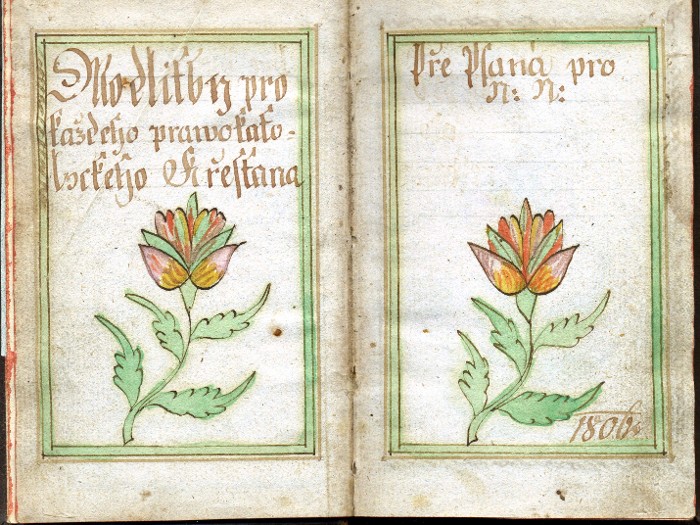 Modlitby pro
každeho prawokato-
lyckeho Křestana
Pře Psana pro
N: N:
1806